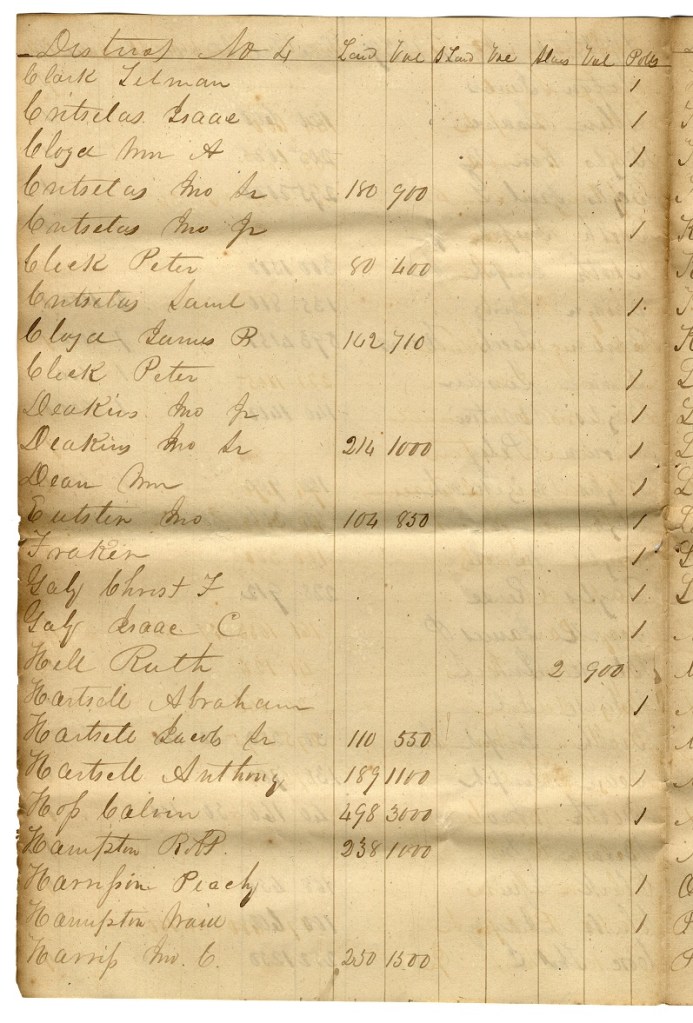 District No 4 Land Val S Land Val Slaves Val Polls
Clark Tilman 1
Critselas Isaac 1
Cloyd Wm A 1
Critselas Jno Sr 180 900
Critselas Jno Jr 1
Cleek Peter 80 400
Critselas Saml 1
Cloyd James B. 142 710
Cleek Peter 1
Deakins Jno Jr 1
Deakins Jno Sr 214 1000 1
Dean Wm 1
Eutsler Jno 104 850 1
Fraker 1
Galy Christ F 1
Galy Isaac C 1
Hell Ruth 2 900
Hartsell Abraham 1
Hartsell Jacob Sr 110 550
Hartsell Anthony 189 1100 1
Hoss Calvin 498 3000 1
Hampton R 238 1000
Harrison Peachy 1
Hampton 1
Harris Jno. C. 250 1500